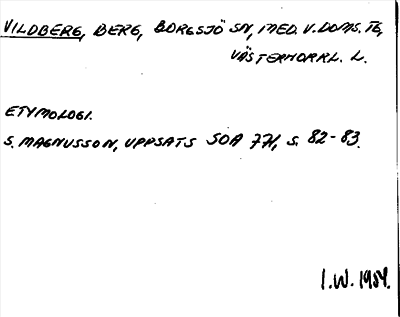 VILDBERG, BERG, BORGSJÖ SN, MED. V. DOMS. TG,
VÄSTERNORRL. L.
ETYMOLOGI.
S. MAGNUSSON, UPPSATS SOA 771, S. 82-83.
I.W. 1984.